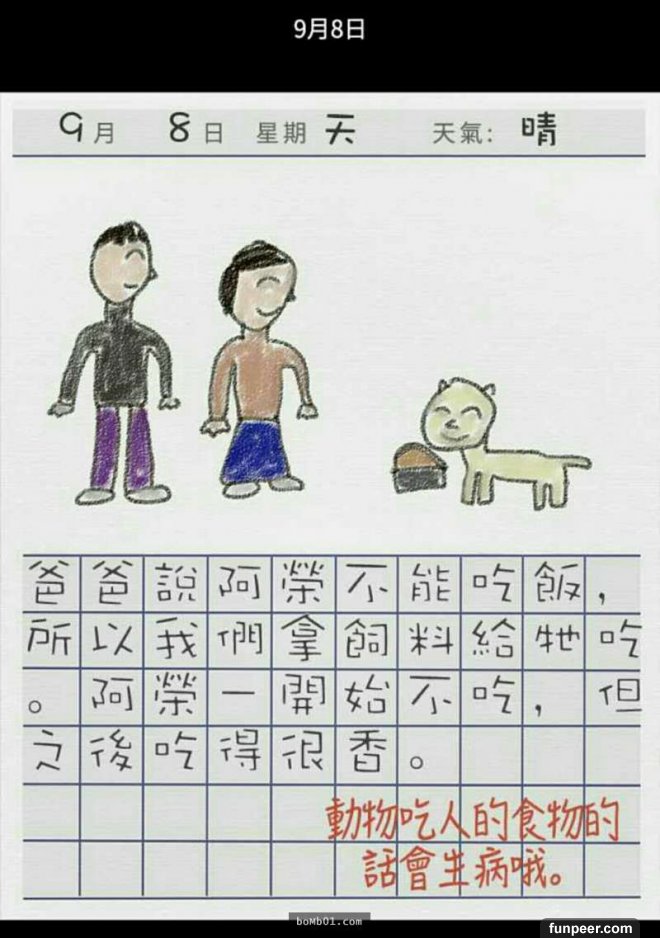 9月8日
9月 8日 星期 天 天氣: 晴
爸爸說阿榮不能吃飯,
所以我們拿飼料給牠吃
。阿榮一開始不吃,但
之後吃得很香。
動物吃人的食物的
話會生病哦。
boMb01.com
funpeer.com